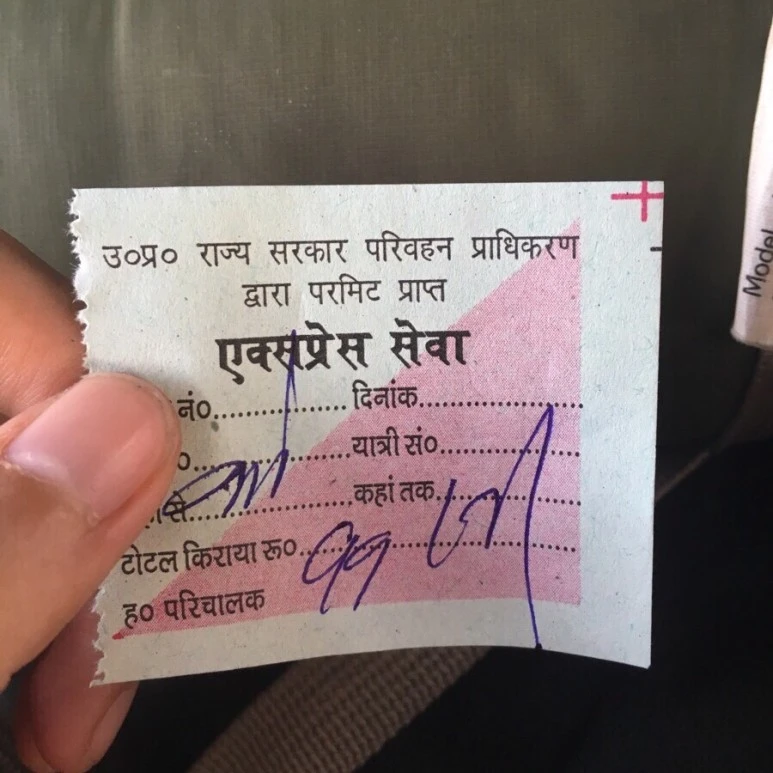 उ०प्र० राज्य सरकार परिवहन प्राधिकरण
द्वारा परमिट प्राप्त
एक्सप्रेस सेवा
नं०.................... दिनांक.........................
०.......................यात्री सं०.....................
से.......................कहां तक.....................
टोटल किराया रू०..........................................
ह० परिचालक
Model